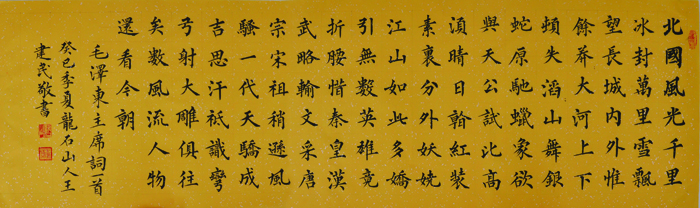 北國風光千里
冰封萬里雪飄
望長城內外惟
餘莽大河上下
頓失滔山舞銀
蛇原馳蠟象欲
與天公試比高
須晴日紅裝
素裹分外妖嬈
江山如此多嬌
引無數英雄竟
折腰惜秦皇漢
武略輸文采唐
宗宋祖稍遜風
騷一代天驕成
吉思汗祗識彎
弓射大雕俱往
矣數風流人物
還看今朝
毛澤東主席詞一首
癸巳季夏龍石山人王
建民敬書